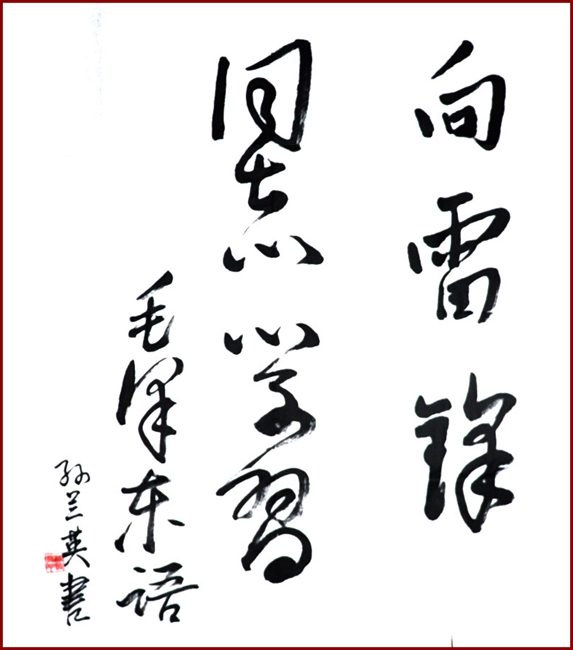 向雷锋
同志学习
毛泽东语
孙兰英书